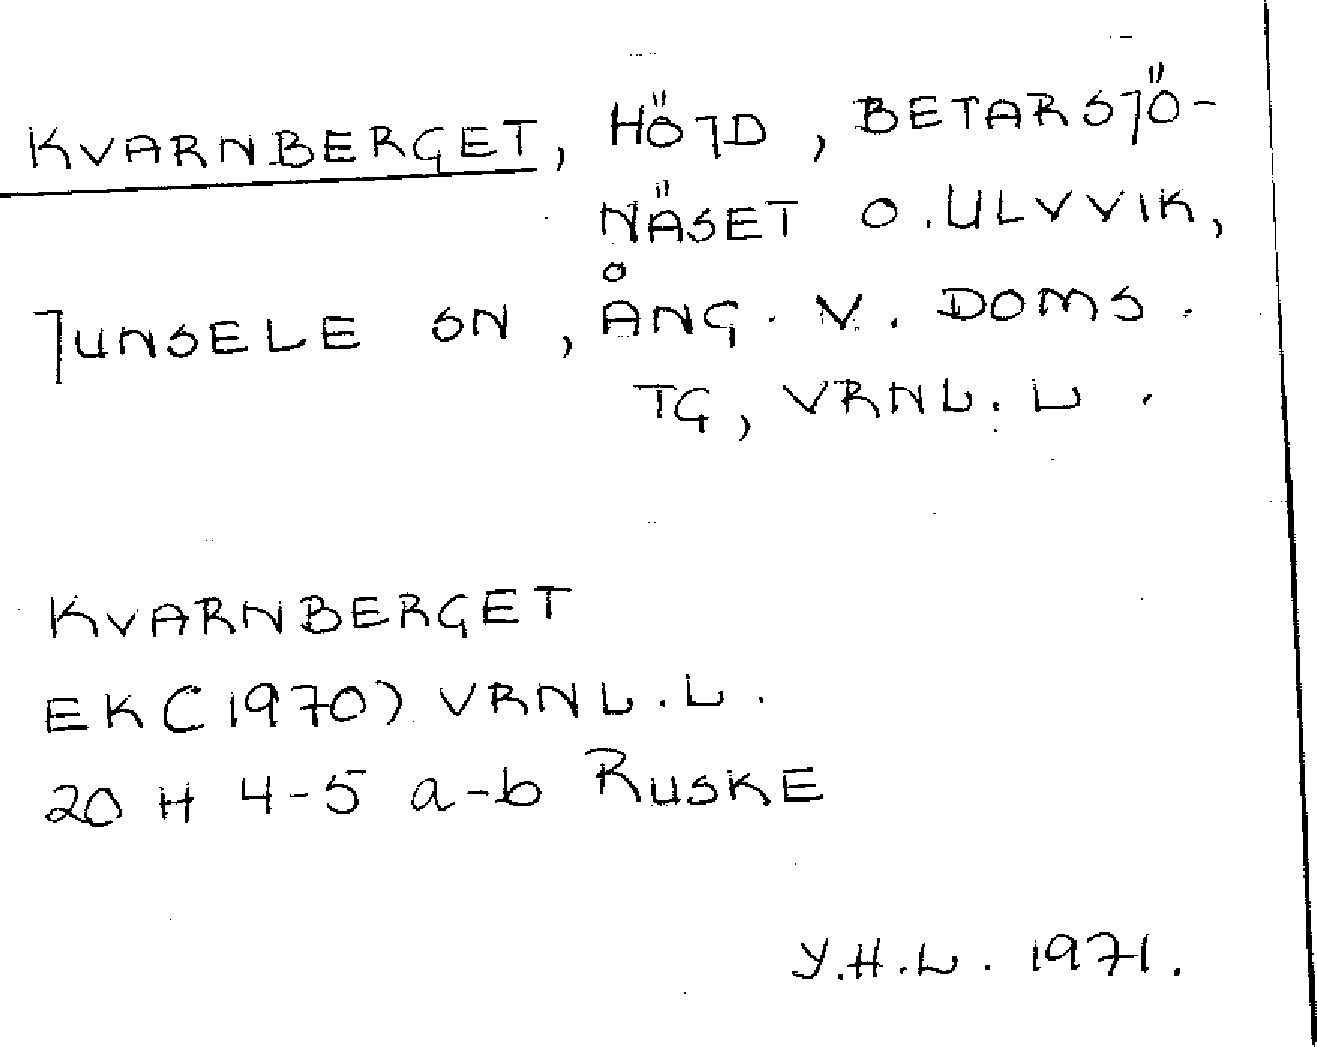 KVARNBERGET, HÖJD, BETARSJÖ-
NÄSET O. ULVVIK,
JUNSELE SN, ÅNG. V. DOMS.
TG, VRNL. L.
KVARNBERGET
EK (1970) VRNL. L.
20 H 4-5 a-b RUSKE
Y.H.L. 1971.